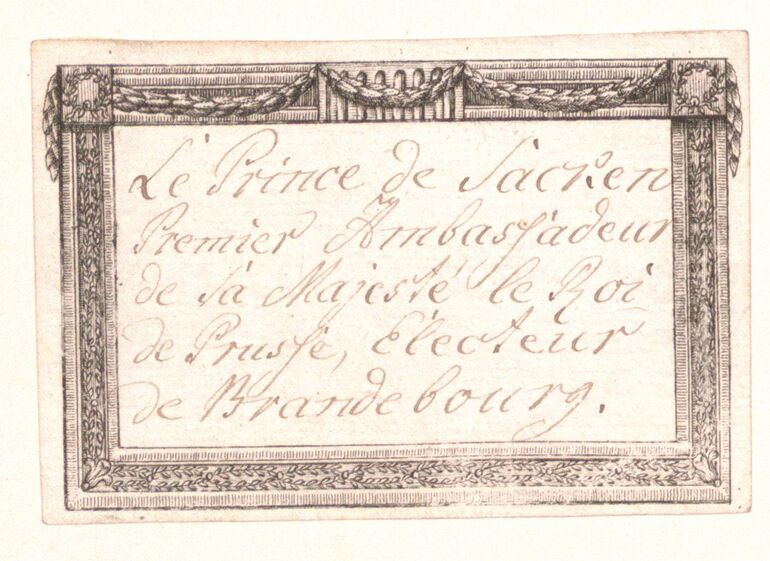 Le Prince de Sacken
Premier Ambassadeur
de Sa Majesté le Roi
de Prusse, Électeur
de Brandebourg.